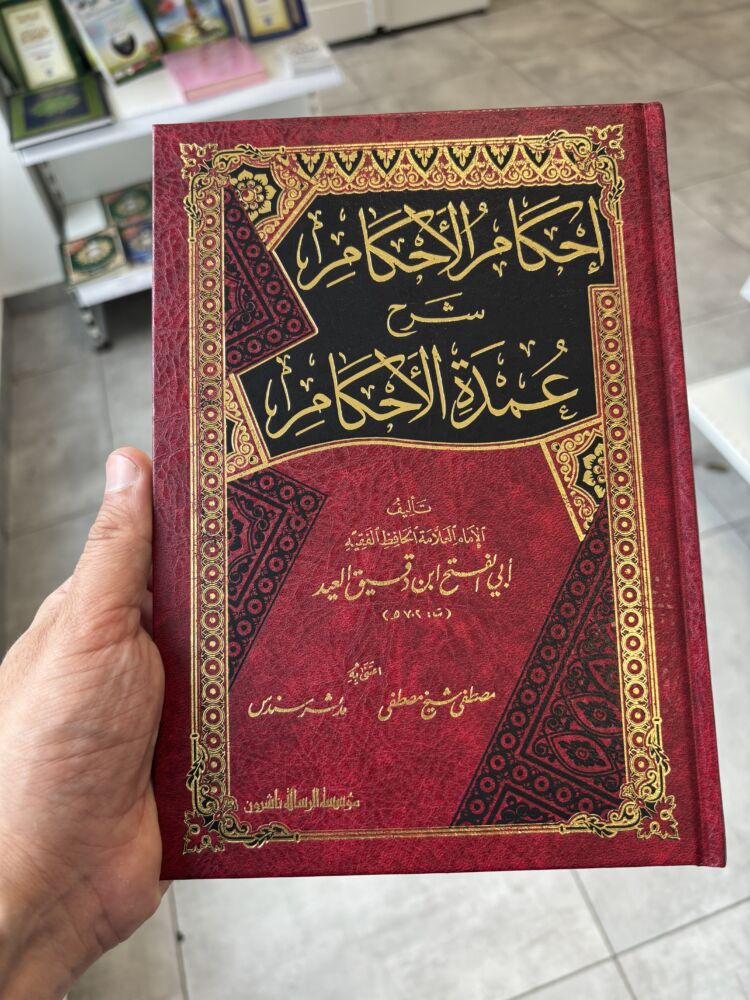 إحكام الأحكام
شرح
عمدة الأحكام
تأليف
الإمام العلامة الحافظ الفقيه
أبي الفتح ابن دقيق العيد
(ت: ٧٠٢ هـ)
اعتنى به
مصطفى شيخ مصطفى مدثر سندس
مؤسسة الرسالة ناشرون